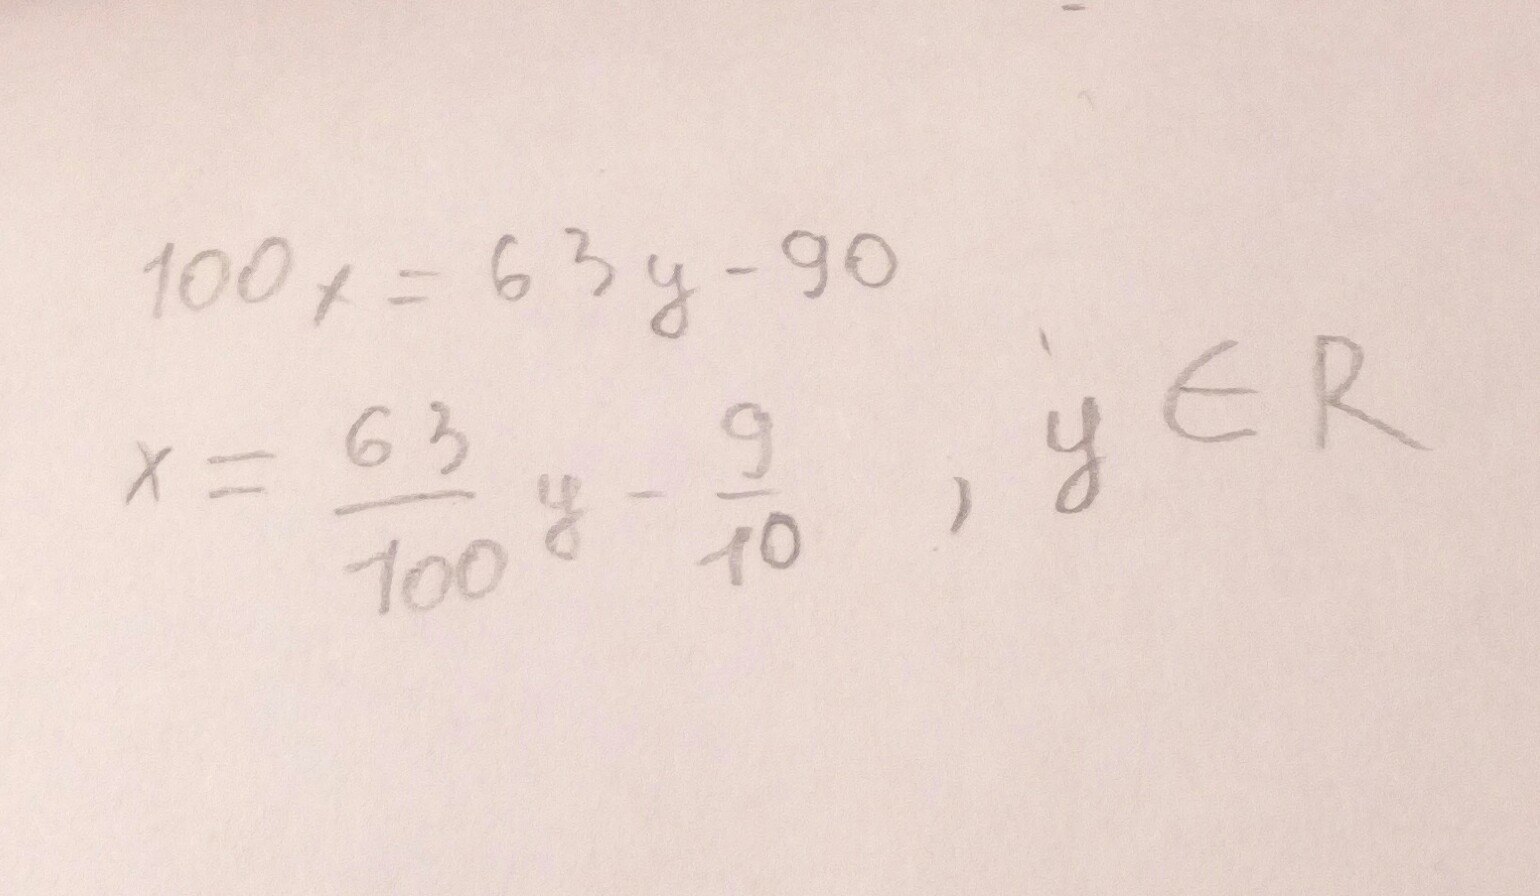 100x = 63y - 90
x = 63/100 y - 9/10 , y ∈ R